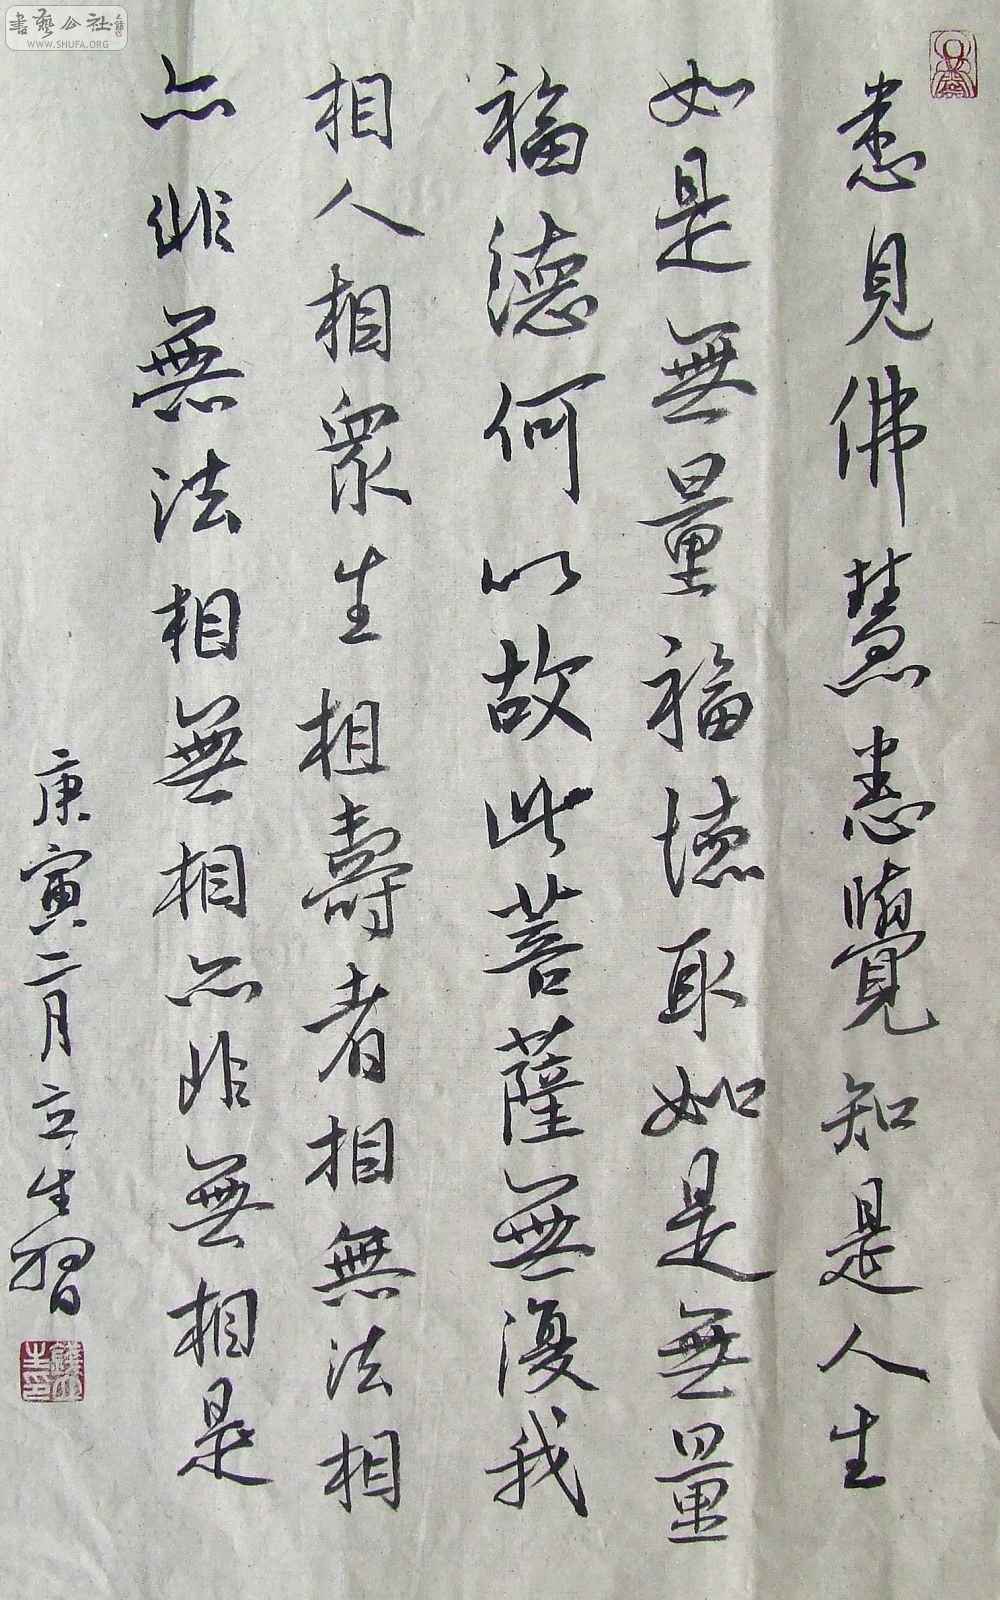 悉見佛慧悉覺知是人生
如是無量福德取如是無量
福德何以故此菩薩無復我
相人相衆生相壽者相無法相
亦非無法相無相亦非無相是
庚寅二月立生習
書藝公社
WWW.SHUFA.ORG